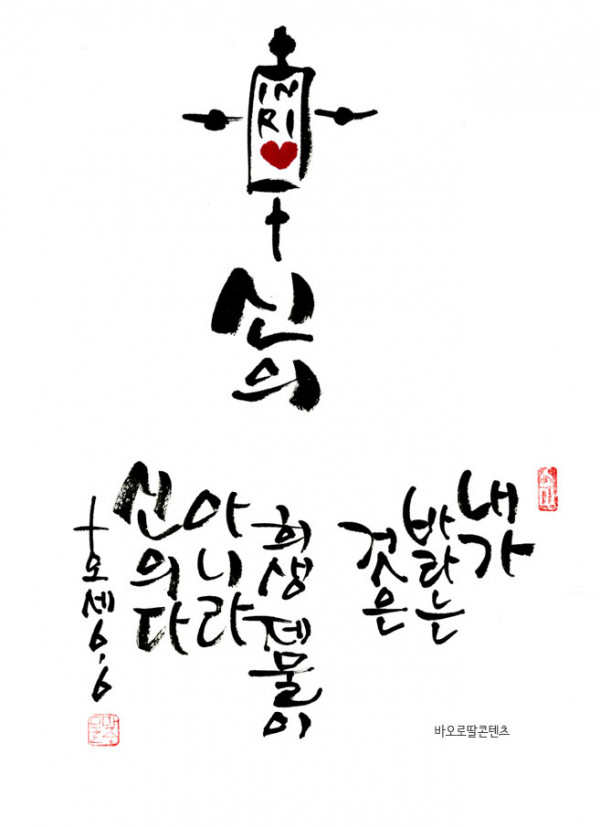 IN
RI
신의
내가
바라는
것은
희생 제물이
아니라
신의다
호세6,6
바오로딸콘텐츠